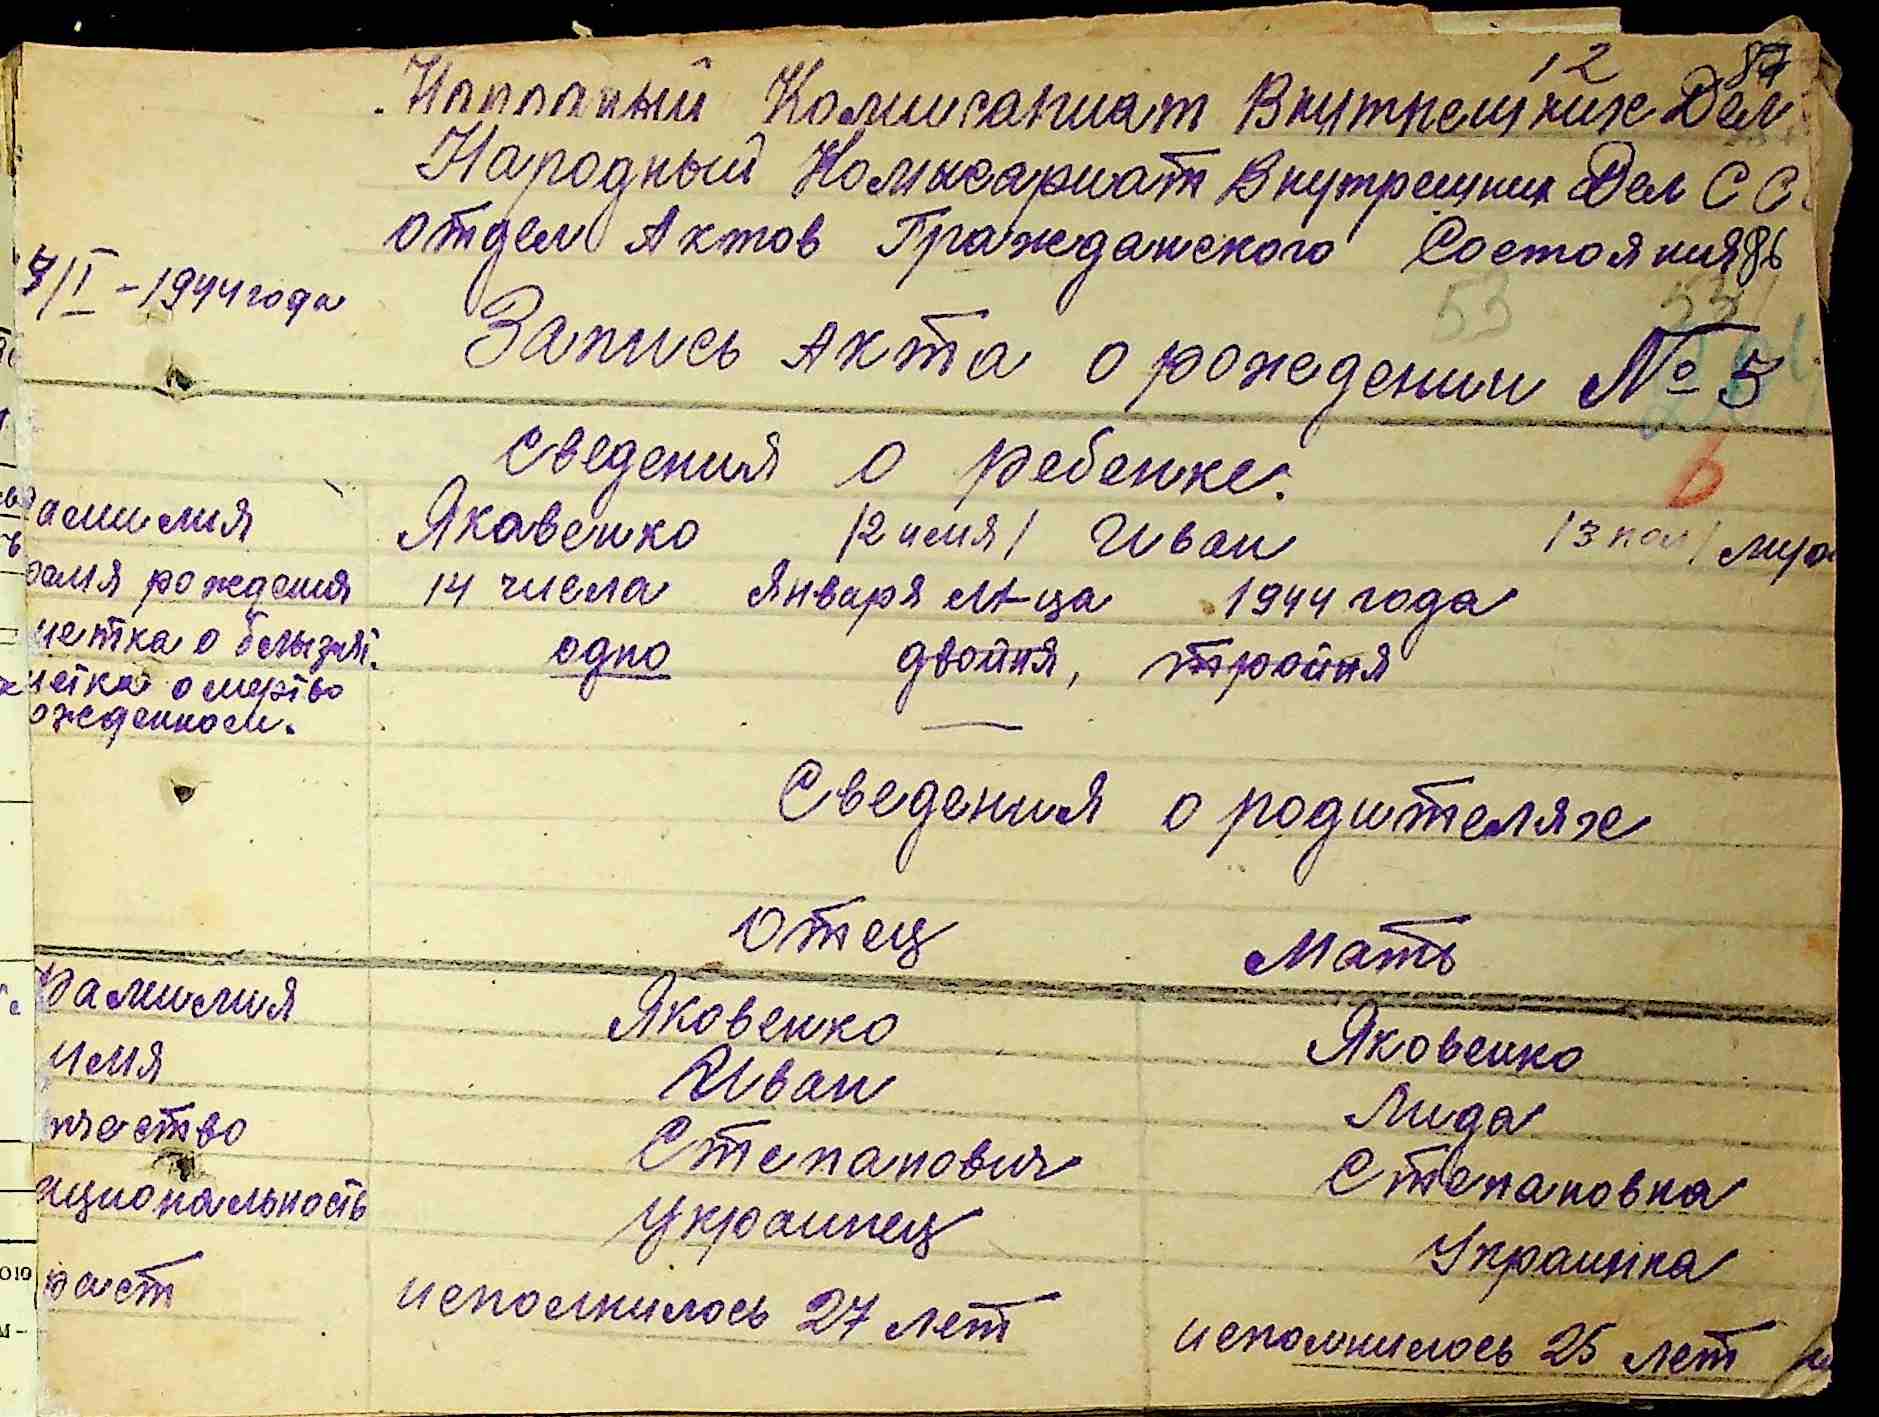 12 87
Народный Комисариат Внутрених Дел
Народный Комисариат Внутрених Дел СС
отдел Актов Гражданского Состояния 86
7/I - 1944 года
53 53
Запись Акта о рождении № 5
Сведения о ребенке.
6
амилия Яковенко /2 имя/ Иван /3 пол/
ремя рождения 14 числа января м-ца 1944 года
метка о близн. одно двойня, тройня
метка о мертво
ожденном. —
Сведения о родителях
Отец Мать
Фамилия Яковенко Яковенко
имя Иван Лида
тчество Степанович Степановна
ациональность Украинец Украинка
раст исполнилось 27 лет исполнилось 25 лет